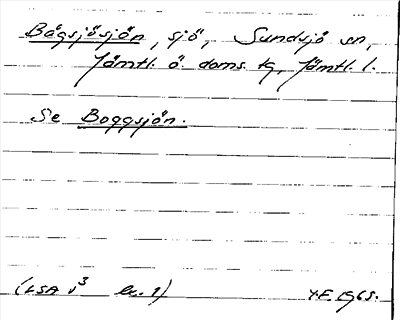 Bågsjösjön, sjö, Sundsjö sn,
Jämtl. ö. doms. tg, Jämtl. l.
Se Boggsjön.
(LSA v³ 1)
1965.